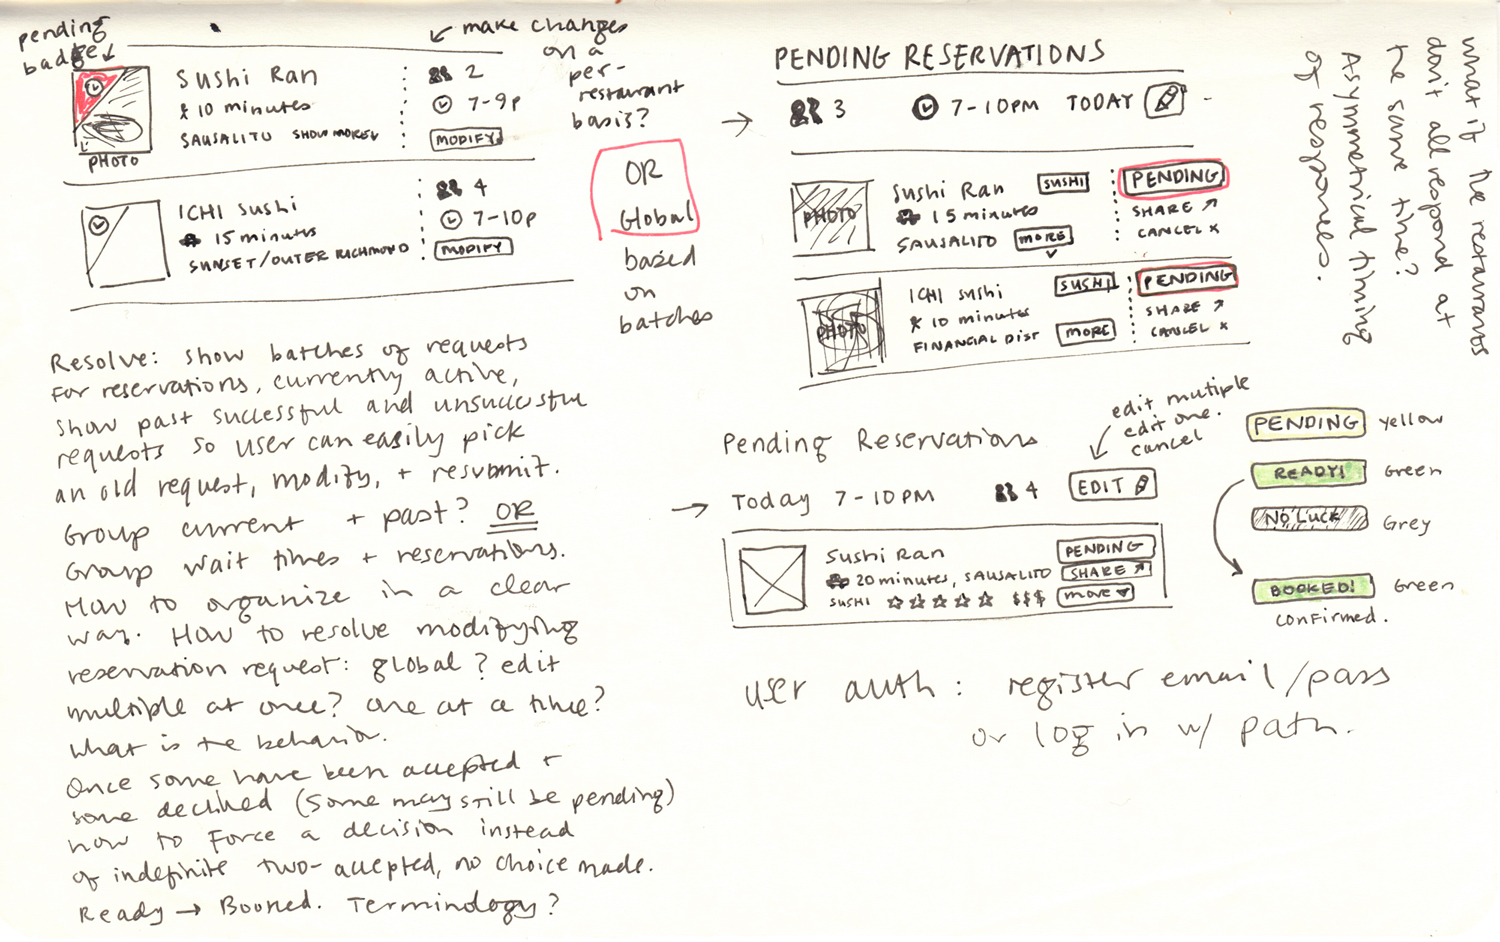 pending
badge
Sushi Ran
10 minutes
SAUSALITO SHOW MORE
PHOTO
2
7-9p
MODIFY
make changes
on a
per-
restaurant
basis?
OR
Global
based
on
batches
ICHI Sushi
15 minutes
SUNSET/OUTER RICHMOND
4
7-10p
MODIFY
Resolve: Show batches of requests
for reservations, currently active,
show past successful and unsuccessful
requests so user can easily pick
an old request, modify, + resubmit.
Group current + past? OR
Group wait times + reservations.
How to organize in a clear
way. How to resolve modifying
reservation request: global? edit
multiple at once? one at a time?
What is the behavior.
Once some have been accepted +
some declined (some may still be pending)
how to force a decision instead
of indefinite two-accepted, no choice made.
Ready → Booked. Terminology?
PENDING RESERVATIONS
3 7-10PM TODAY
PHOTO
Sushi Ran SUSHI
15 minutes
SAUSALITO MORE
PENDING
SHARE ↗
CANCEL x
PHOTO
ICHI Sushi SUSHI
10 minutes
FINANCIAL DIST MORE
PENDING
SHARE ↗
CANCEL x
what if the restaurants
don't all respond at
the same time?
Asymmetrical timing
of responses.
edit multiple
edit one.
cancel
Pending Reservations
Today 7-10PM 4 EDIT
Sushi Ran PENDING
20 minutes, SAUSALITO SHARE ↗
SUSHI ☆☆☆☆☆ $$$ more
PENDING yellow
READY! Green
NO LUCK Grey
BOOKED! Green
confirmed.
user auth: register email/pass
or log in w/ path.